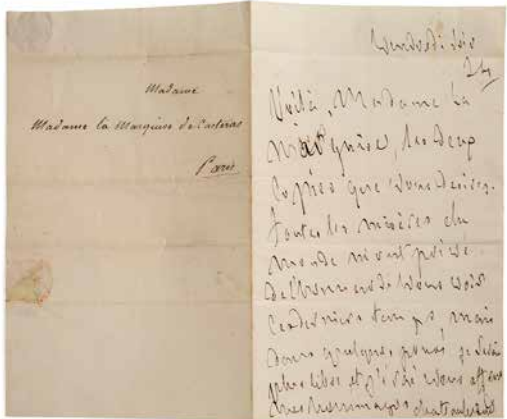 Madame
Madame la Marquise de Castéras
Paris
Vendredi soir
24
Voilà, Madame la
Marquise, les deux
copies que vous desirez.
Toutes les misères du
monde m'ont privé
de l'honneur de vous voir
ces derniers temps, mais
dans quelques jours je serai
plus libre et j'irai vous offrir
mes hommages